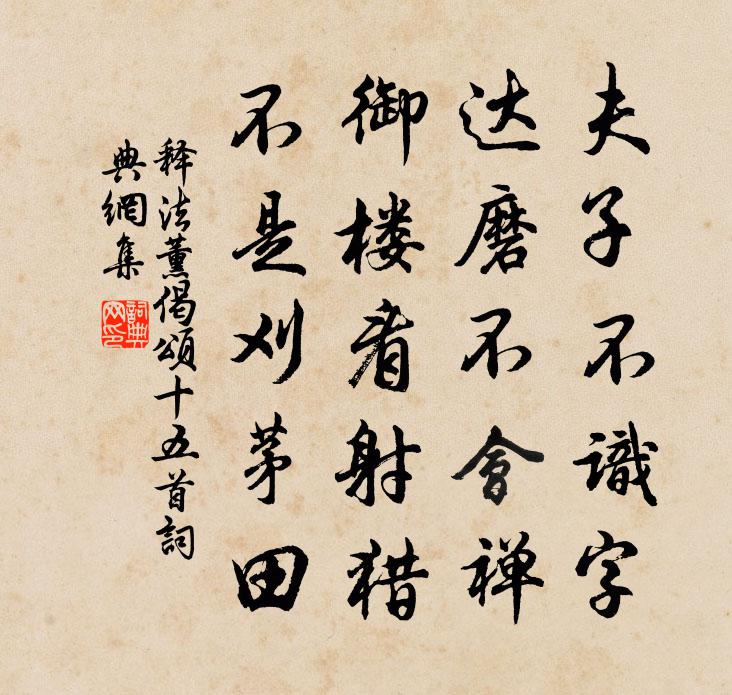 夫子不識字
达磨不會禅
御楼看射猎
不是刈茅田
释法薰偈頌十五首詞
典網集
詞典网印